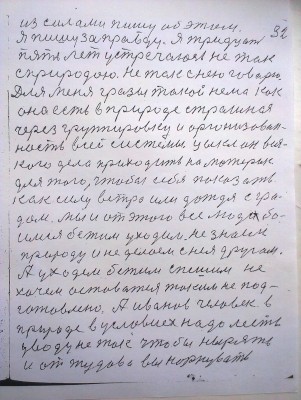 из силами пишу об этом. 32
Я пишу за правду. Я тридцать
пять лет устречаюся не так
с природою. Не так с нею говорю.
Для меня грязи такой нема как
она есть в природе страшная
через группировку и организован-
ность всей системы
кого дела приходить на материк
для того, чтобы себя показать
как силу ветра или дождя с гра-
дом. Мы и от этого все люди бо-
имся бежим уходим. Не знаем
природу и не делаем с нея другам.
А уходим бежим спешим не
хочем оставатся такими не под-
готовлено. А иванов человек в
природе в условиех надо лезть
у воду не так чтобы нырять
и от тудова вынорювать